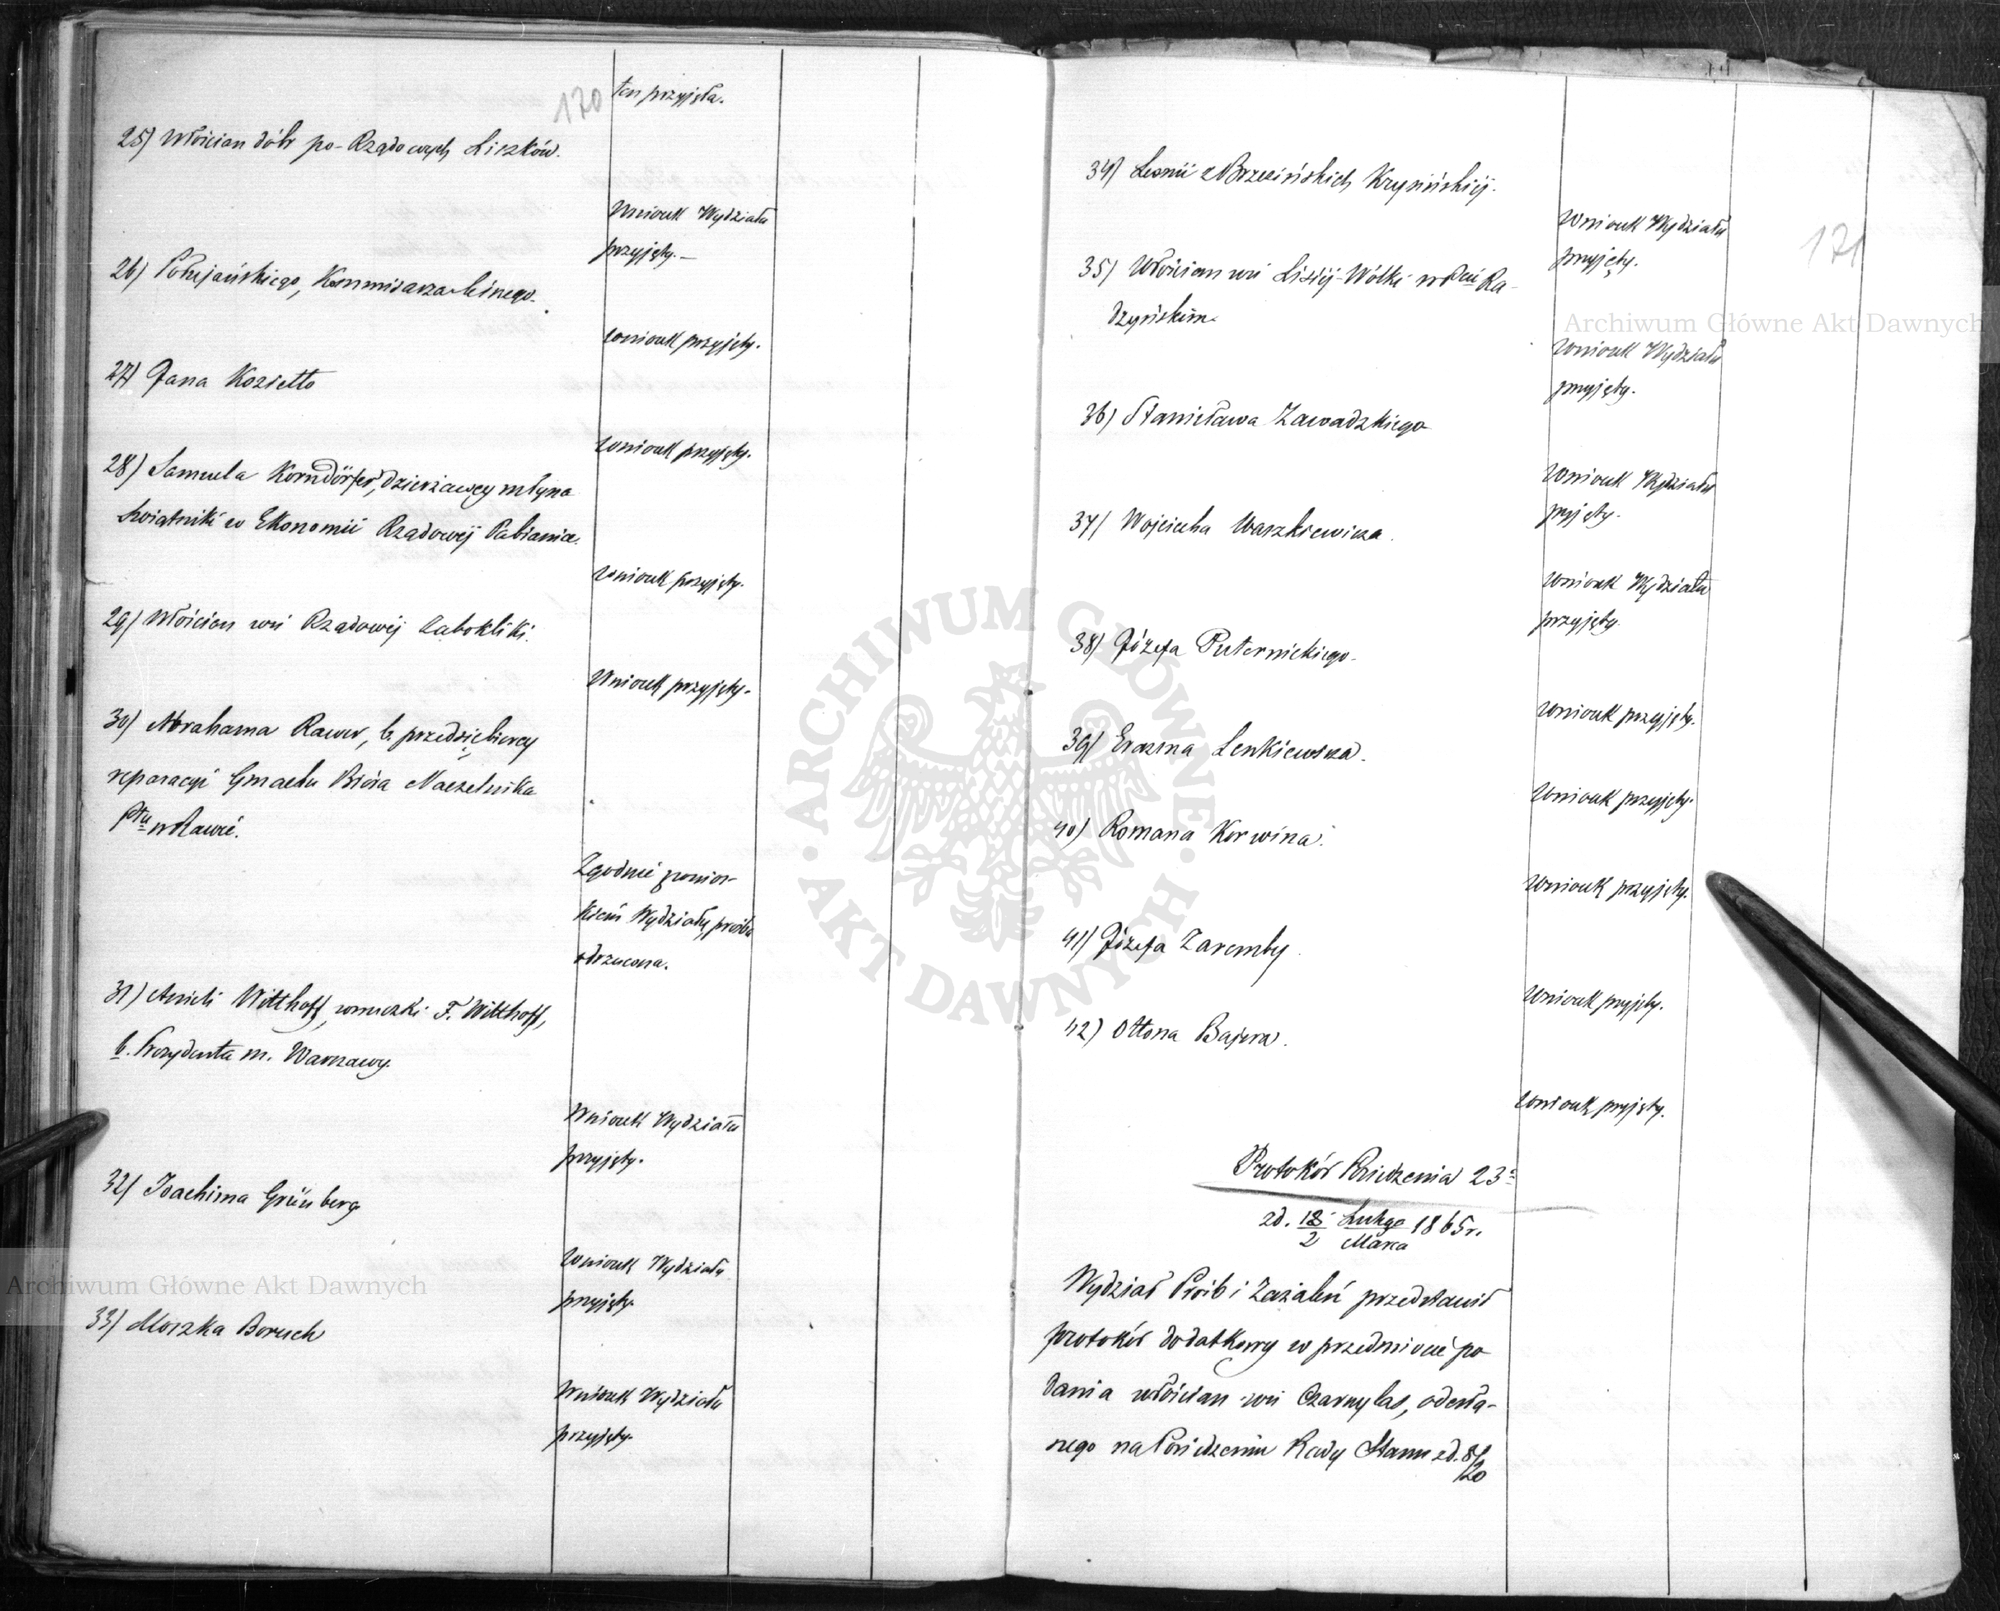 170
ten przyjęta.
25) Włościan dóbr po-Rządowych Liszków.
Wniosek Wydziału
przyjęty.—
26) Połujańskiego, Kommissarza leśnego.
Wniosek przyjęty.
27) Jana Koziełło
Wniosek przyjęty.
28) Samuela Korndörfer, dzierżawcy młyna
Świątniki w Ekonomii Rządowéj Pabianice.
Wniosek przyjęty.
29) Włościan wsi Rządowéj Żabokliki.
Wniosek przyjęty.
30) Abrahama Rawer, b. przedsiębiercy
reparacyi Gmachu Bióra Naczelnika
Ptu w Rawie.
Zgodnie z wnios-
kiem Wydziału, prośba
odrzucona.
31) Anieli Witthoff, wnuczki F. Witthoff,
b. Prezydenta m. Warszawy.
Wniosek Wydziału
przyjęty.
32) Joachima Grünberg
Wniosek Wydziału
przyjęty.
33) Moszka Boruch
Wniosek Wydziału
przyjęty.
171
34) Leonii z Brzezińskich Krysińskiéj.
Wniosek Wydziału
przyjęty.
35) Włościan wsi Lisiéj-Wólki w Pcie Ra-
dzyńskim.
Wniosek Wydziału
przyjęty.
36) Stanisława Zawadzkiego
Wniosek Wydziału
przyjęty.
37) Wojciecha Waszkiewicza.
Wniosek Wydziału
przyjęty.
38) Józefa Puternickiego.
Wniosek przyjęty.
39) Erazma Lenkiewicza.
Wniosek przyjęty.
40) Romana Korwina.
Wniosek przyjęty.
41) Józefa Zaremby.
Wniosek przyjęty.
42) Ottona Bajera.
Wniosek przyjęty.
Protokół Posiedzenia 23
z d. 18/2 Lutego/Marca 1865 r.
Wydział Próśb i Zażaleń przedstawił
protokół dodatkowy w przedmiocie po
dania włościan wsi Czarnylas, odesła-
nego na Posiedzeniu Rady Stanu z d. 8/20
Archiwum Główne Akt Dawnych
Archiwum Główne Akt Dawnych
ARCHIWUM GŁÓWNE · AKT DAWNYCH ·